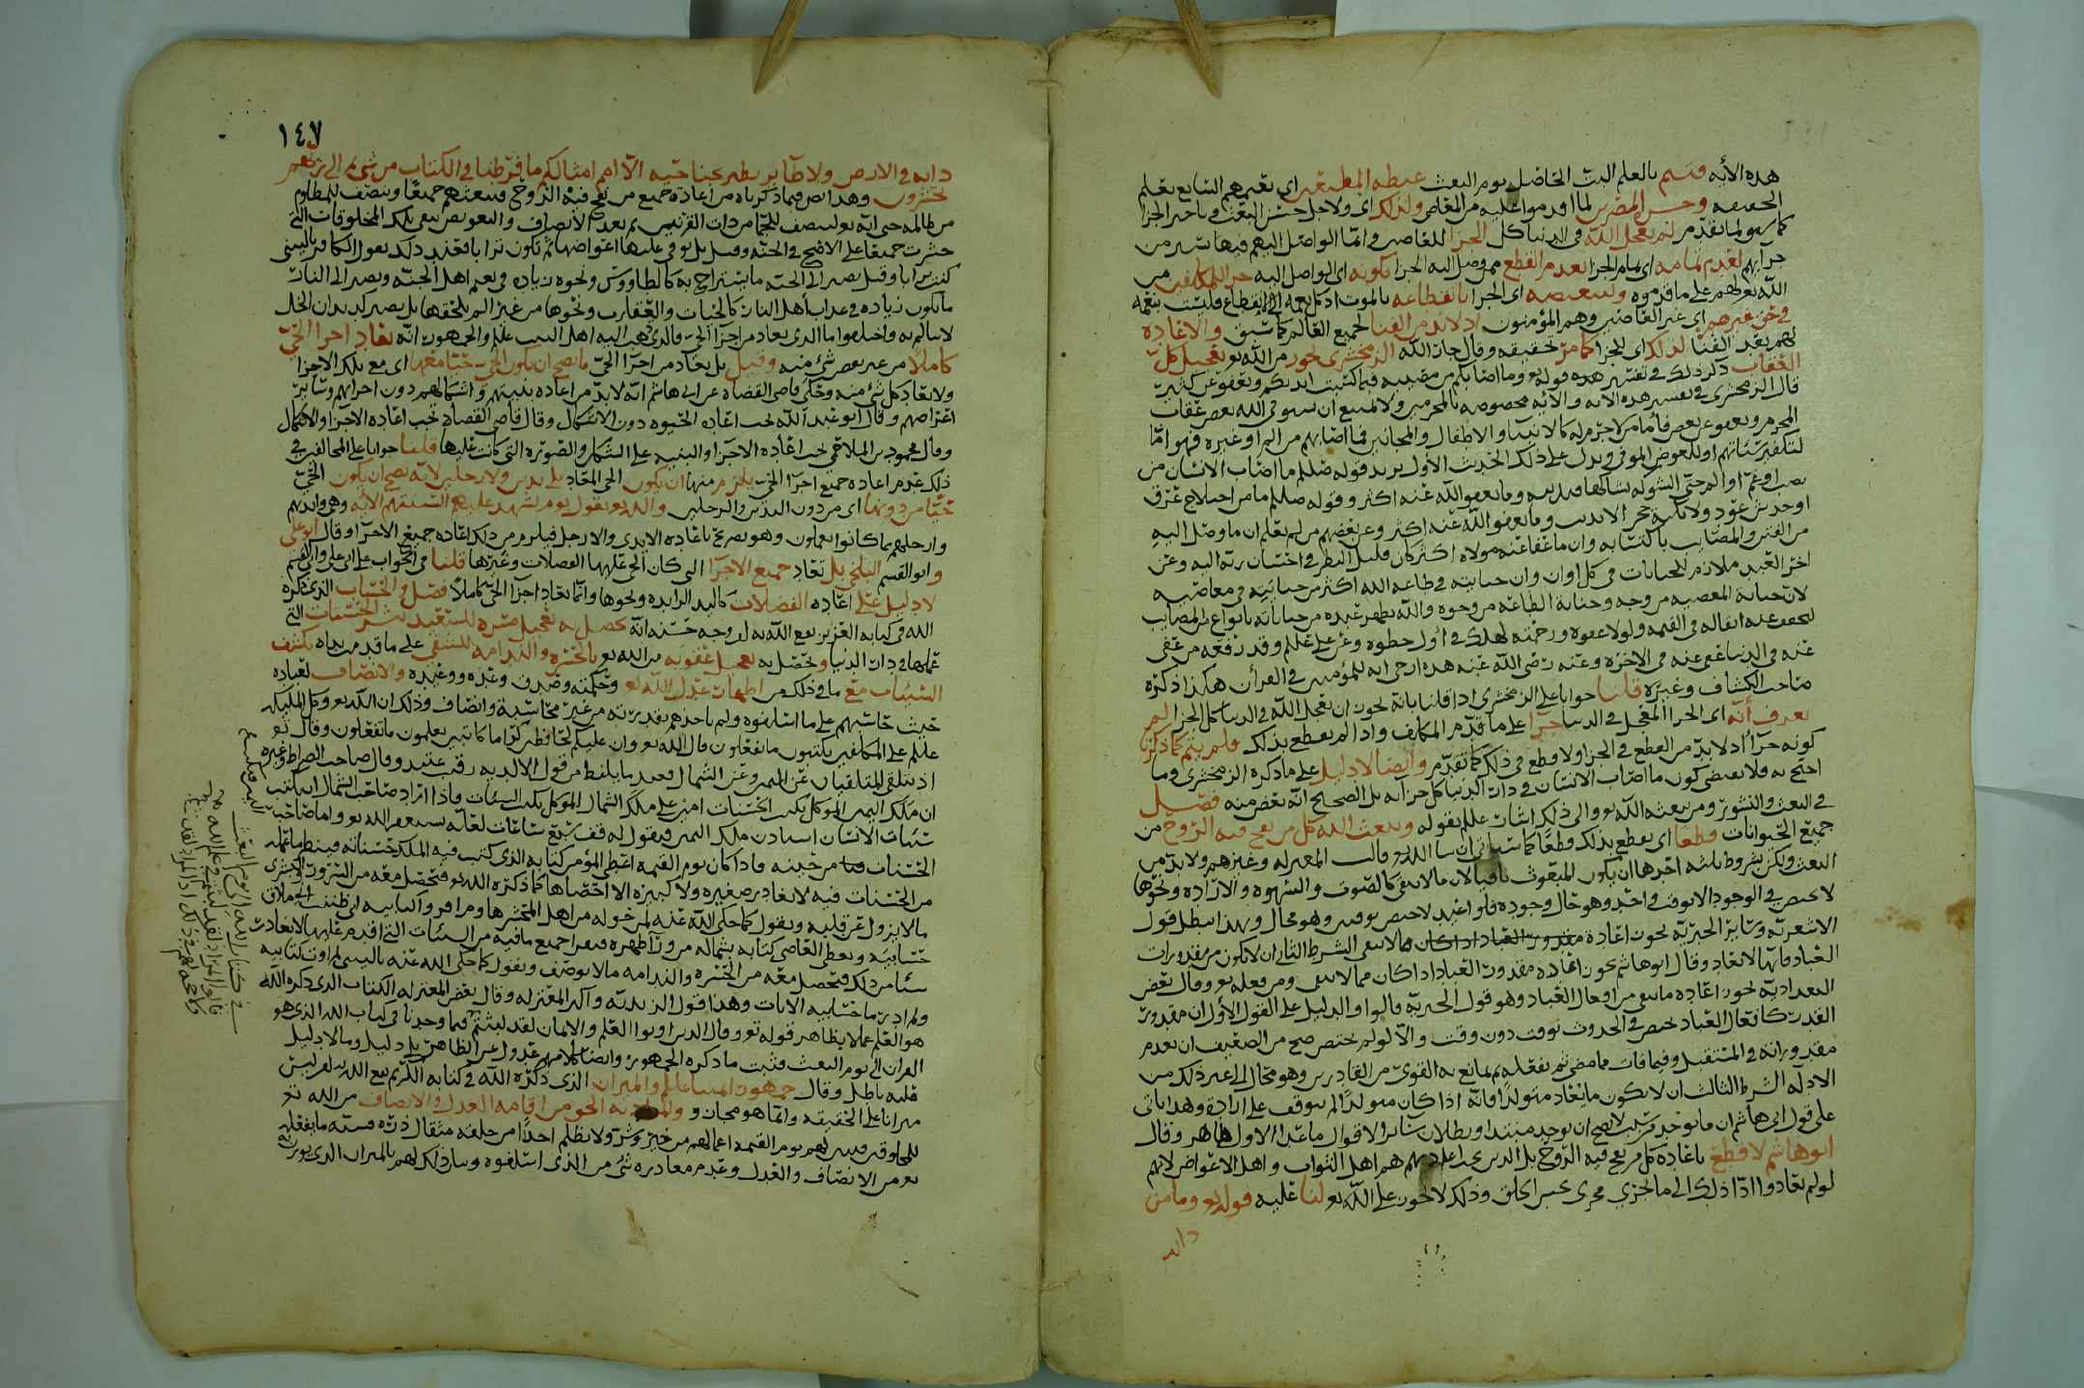 هذه الآية فيتم بالعلم البت الحاصل يوم البعث غبطه المطيعين اي تغبرهم التابع بعلم
الحقيقه وحسره المصرين لما اقدموا عليه من المعاصي ولذلك اي ولاجل حسن البعث وتاخير الجزا
لما تقدم من لم يعجل الله في الدنيا كل الجزا للعاصين وانما الواصل اليهم فيها يسير من
جزائهم لعدم تمامه اي تمام الجزا بعدم القطع ممن وصل اليه الجزا بكونه اي الواصل اليه جزا للمكلفين من
الله تعالى لهم على ما قدموه ولتنغصه اي الجزا بانقطاعه بالموت اذ كل نعمه الى انقطاع فليست بنعمه
في حق غيرهم اي غير العاصين وهم المؤمنون اذ لابد من الفنا لجميع العالم كما سبق والاعاده
لهم بعد الفنا لذلك اي للجزا كما مر حقيقه وقال جار الله الزمخشري يجوز من الله تعالى تعجيل كل
العقاب ذكر ذلك في تفسير هذه قوله تعالى وما اصابكم من مصيبه فبما كسبت ايديكم ويعفو عن كثير
قال الزمخشري في تفسير هذه الآيه والآيه مخصوصه بالمجرمين ولا يمتنع ان يستوفي الله بعض عقاب
المجرم ويعفو عن بعض فأما من لا جرم له كالانبياء والاطفال والمجانين فما اصابهم من الم او غيره فهو امّا
للعوض الموفى ويدل على ذلك الحديث الاول يريد قوله صللم ما اصاب الانسان من
حتى الشوكه يشاكها وما يعفو الله عنه اكثر وقوله صللم ما من اختلاج عرق
او خدش عود ولا نكبة حجر الا بذنب وما يعفو الله عنه اكثر وعن بعضهم من لم يعلم ان ما وصل اليه
من الفتن والمصايب باكتسابه وان ما عفا عنه مولاه اكثر كان قليل النظر في احسان ربه اليه وعن
اخر العبد ملازم للجنايات في كل اوان وان جنايته في طاعه الله اكثر من جنايته في معاصيه
لان جناية المعصيه من وجه وجناية الطاعه من وجوه والله يطهر عبده من جناياته بانواع من المصايب
ليخفف عنه اثقاله في القيمه ولولا عفوه ورحمته لهلك في اول خطوه وعن علي عللم وقد رفعه من عفي
عنه في الدنيا عفي عنه في الاخره وعنه رضي الله عنه هذه ارجى ايه للمؤمنين في القرآن هكذا ذكره
صاحب الكشاف وغيره قلنا جوابا على الزمخشري اذا قلنا بانه يجوز ان يعجل الله في الدنيا كل الجزا لم
يعرف أنه اي الجزا المعجل في الدنيا جزآ على ما قدم المكلف واذا لم يقطع بذلك فلم يتم كما ذكره
كونه جزآ اذ لابد من القطع في الجزا ولا قطع في ذلك كما تقدم وايضا لا دليل على ما ذكره الزمخشري وما
احتج به فلا يقتضي كون ما اصاب الانسان في دار الدنيا كل جزآئه بل الصحيح انه بعض منه فصل
في البعث والنشور ومن يبعثه الله تعالى والى ذلك اشار عللم بقوله ويبعث الله كل من نفخ فيه الروح من
جميع الحيوانات قطعا اي يقطع بذلك قطعا كما سياتي ان شا الله تعالى قالت المعتزله وغيرهم ولابد من
البعث ولكن بشروط ثلثه احدها ان يكون المبعوث باقيا لان ما لا يبقى كالصوت والشهوه والاراده ونحوها
لا يختص في الوجود الا بوقت واحد وهو حال وجوده فلو اعيد لاختص بوقتين وهو محال وبهذا يبطل قول
الاشعريه وسائر الجبريه بجواز اعادة ما لا يبقى الشرط الثاني ان لا يكون من مقدورات
العباد فانها لا تعاد وقال ابو هاشم يجوز اعاده مقدور العباد اذا كان مما لا يبقى ومن فعله تعالى وقال بعض
البغداديه يجوز اعاده ما يبقى من افعال العباد وهو قول الجبريه قالوا والدليل على القول الاول ان مقدور
القدر كافعال العباد يختص في الحدوث بوقت دون وقت والا لو لم يختص صح من الضعيف ان يقدم
مقدوراته في المستقبل وفيما فات مما مضى ثم يفعله ثم يمانع به القوي من القادرين وهو محال الى غير ذلك من
الادله الشرط الثالث ان لا يكون ما يعاد متولدا فانه اذا كان متولدًا لم يتوقف على ارادة وهذا ياتي
على قول ابي هاشم ان ما يوجد مرتب لا يصح ان يوجد مبتدا وبطلان سائر الاقوال ما عدا الاول ظاهر وقال
ابو هاشم لا قطع باعادة كل من نفخ فيه الروح بل الذين يجب اعادتهم هم اهل الثواب واهل الاعواض لانهم
لو لم يعادوا ادّا ذلك الى ما يجري مجرى عبس الخلق وذلك لا يجوز على الله تعالى لنا عليه قوله تعالى وما من
دابه
١٤٧
دابه في الارض ولا طآير يطير بجناحيه الآ امم امثالكم ما فرطنا في الكتاب من شيء ثم الى ربهم
يحشرون وهذا نص فيما ذكرناه من اعادة جميع من نفخ فيه الروح فيبعثهم جميعًا وينتصف للمظلوم
من ظالمه حتى انه تعالى لينتصف للجمّا من ذات القرنين ثم بعد الانصاف والتعويض تبقى تلك المخلوقات التي
حشرت جميعًا على الاصح في الجنه وقيل بل توفى عليها اعواضها ثم تكون ترابا فعند ذلك يقول الكافر ياليتني
كنت ترابا وقيل يصير الى الجنه ما يستراح به كالطاووس ونحوه زياده في نعيم اهل الجنه ويصير الى النار
ما يكون زياده في عذاب اهل النار كالحيات والعقارب ونحوها من غير الم يلحقها بل يصير لها بدن الخل
لا يتالم به واختلفوا ما الذي يعاد من اجزا الحي فالذي ذهب اليه اهل البيت عللم والجمهور انه تعاد اجزآ الحيّ
كاملا من غير نقص شي منه وقيل بل يعاد من اجزآ الحيّ ما يصح ان يكون الحيّ حيّا معها اي مع تلك الاجزا
ولا يعاد كل شي منه وحكى قاضي القضاه عن ابي هاشم انه لابد من اعاده بنيتهم واشكالهم دون اجزائهم وسائر
اعراضهم وقال ابو عبد الله يجب اعاده الحيوه دون الاشكال وقال قاضي القضاه يجب اعاده الاجزآ والاشكال
وقال محمود بن الملاحمي يجب اعاده الاجزآ والبنيه على الشكل والصوره التي كانت عليها قلنا جوابا على المخالفين في
ذلك بعدم اعاده جميع اجزآ الحيّ يلزم منها ان يكون الحي المعاد بلا يدين ولا رجلين لانه يصح ان يكون الحيّ
حيّا من دونها اي من دون اليدين والرجلين والله تعالى يقول يوم تشهد عليهم السنتهم الآيه وهي وايديهم
وارجلهم بما كانوا يعملون وهو تصريح باعاده الايدي والارجل فيلزم من ذلك اعاده جميع الاجزآ وقال ابو علي
وابو القسم البلخي بل تعاد جميع الاجزآ التي كان الحي عليها الفضلات وغيرها قلنا في الجواب على ابي علي وابي القسم
لا دليل على اعاده الفضلات كاليد الزايده ونحوها وانما تعاد اجزآ الحيّ كاملاً فصل والحساب الذي ذكره
الله في كتابه العزيز وجه حسنه انه يحصل به تعجيل مسره للسعيد بنشر الحسنات التي
عملها في دار الدنيا وحصل به تعجيل عقوبه من الله تعالى بالحسره والندامه للشقي على ما قدمت يداه بكشف
السيئات مع ما في ذلك من اظهار عدل الله تعالى وحكمته وصدق وعده ووعيده والانصاف لعباده
حيث حاسبهم على ما اسلفوه ولم ياخذهم بقدرته من غير محاسبة وانصاف وذلك ان الله تعالى وكل الملئكه
عللم على المكلفين يكتبون ما يفعلون قال الله تعالى وان عليكم لحافظين كرامًا كاتبين يعلمون ما تفعلون وقال تعالى
اذ يتلقى المتلقيان عن اليمين وعن الشمال قعيد ما يلفظ من قول الا لديه رقيب عتيد وقال صاحب الصراط وغيره
ان ملك اليمين الموكل بكتب الحسنات امين على ملك الشمال الموكل بكتب السيئات فاذا اراد صاحب الشمال ان يكتب
سيئات الانسان استاذن ملك اليمين فيقول له قف سبع ساعات لعله يستغفر الله تعالى واما صاحب
الحسنات من حينه فاذا كان يوم القيمه اعطي المؤمن كتابه الذي كتب فيه الملك حسناته فينظر ما عمله
من الحسنات فيه لا يغادر صغيره ولا كبيره الا احصاها كما ذكره الله تعالى فتحصل معه من السرور والبشرى
ما لا يزول عن قلبه ويقول كما حكى الله عنه لمن حوله من اهل المحشر هاوم اقروا كتابيه اني ظننت اني ملاق
حسابيه ويعطى العاصي كتابه بشماله من ورآ ظهره فيقرا جميع ما فيه من السيئات التي اقدم عليها لا تغادر
شيئا من ذلك فتحصل معه من الحسره والندامه ما لا يوصف ويقول كما حكى الله عنه ياليتني لم اوت كتابيه
ولم ادر ما حسابيه الايات وهذا قول الزيديه واكثر المعتزله وقال بعض المعتزله الكتاب الذي ذكره الله
هو العلم عملا بظاهر قوله تعالى وقال الذين اوتوا العلم والايمان لقد لبثتم فيما وجدنا في كتاب الله الذي هو
القران الى يوم البعث فثبت ما ذكره الجمهور وايضا كلامهم عدول عن الظاهر بلا دليل وما لا دليل
عليه باطل وقال جمهور ائمتنا عللم والميزان الذي ذكره الله في كتابه الكريم ليس
ميزانا على الحقيقه وانما هو مجاز والمراد به الحق من اقامه العدل والانصاف من الله تعالى
للمخلوقين فيبين لهم يوم القيمه اعمالهم من خير وشر ولا يظلم احدًا من خلقه مثقال ذرّه
من الانصاف والعدل وعدم مغادره شي من الذي اسلفوه وبيان ذلك لهم بالميزان الذي يوزن به
في كتاب الله الى يوم البعث